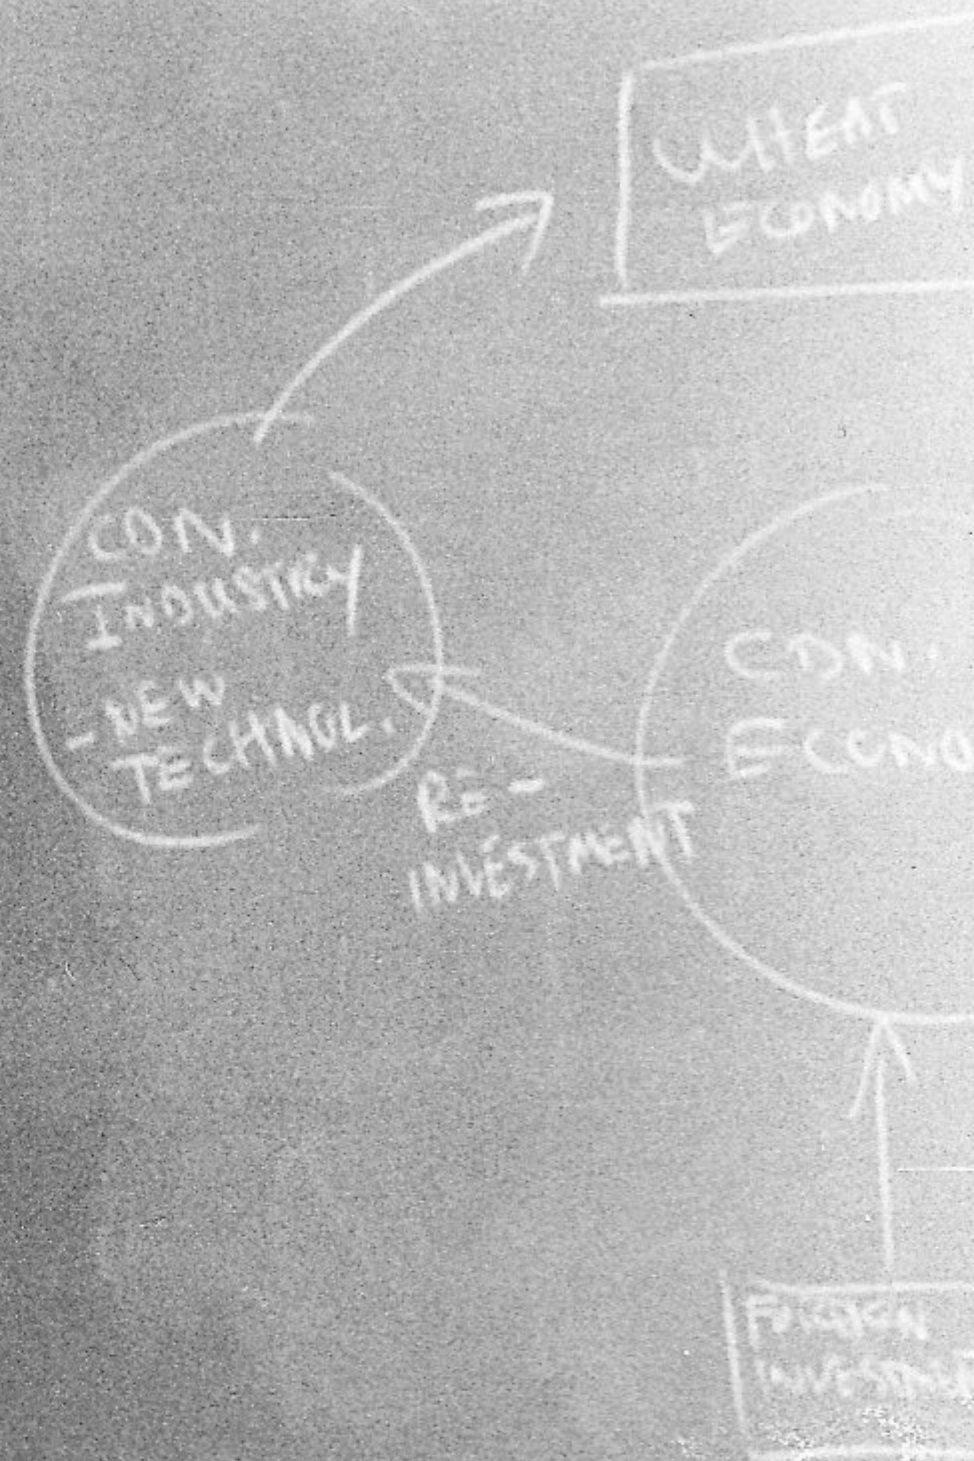 WHEAT
ECONOMY
CDN.
INDUSTRY
- NEW
TECHNOL.
RE-
INVESTMENT
CDN.
ECONO
FOREIGN
INVESTME